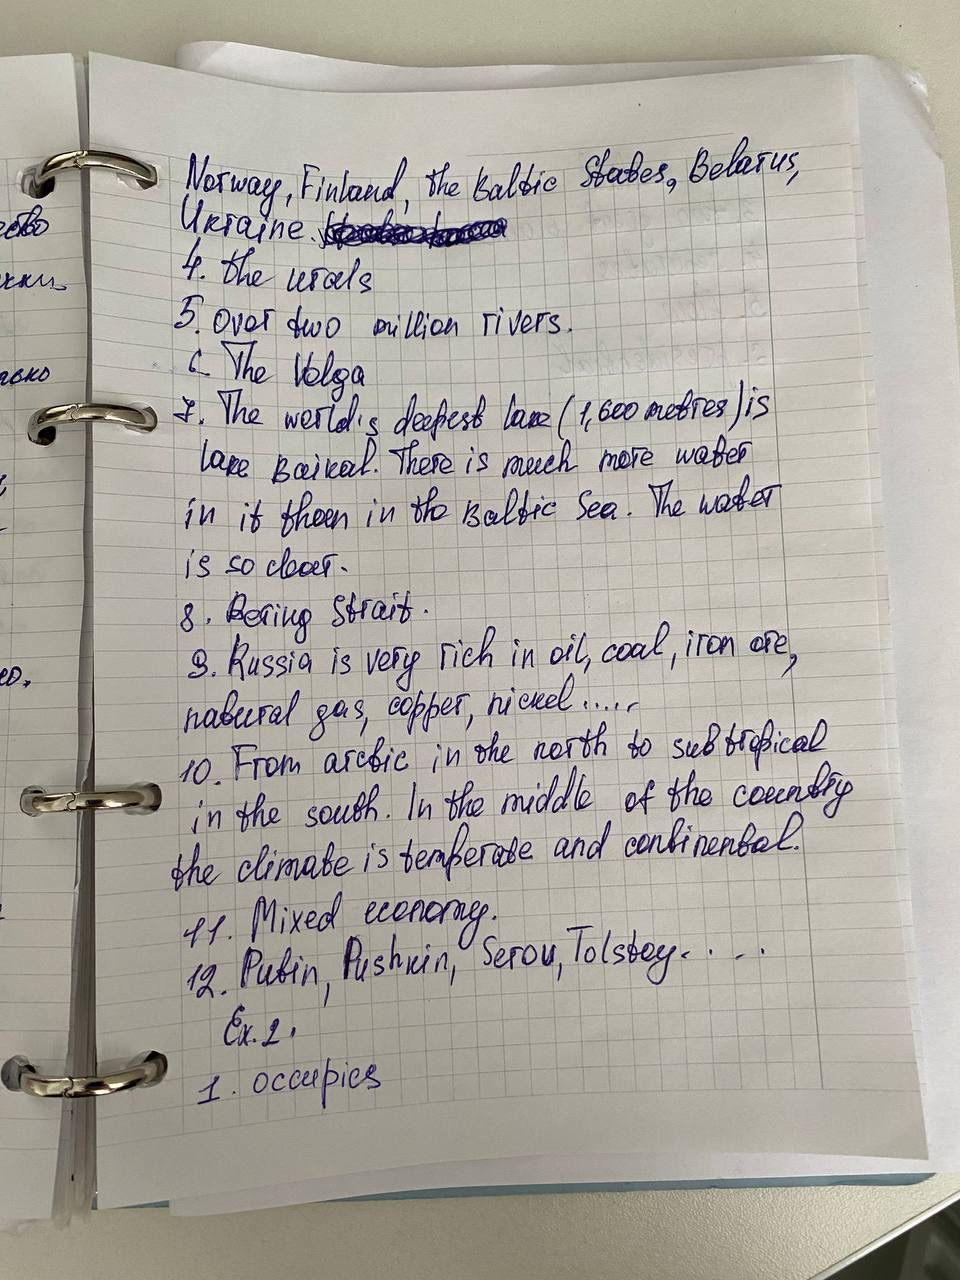 Norway, Finland, the Baltic States, Belarus,
Ukraine.
4. the Urals
5. Over two million rivers.
6. The Volga
7. The world's deepest lake (1,600 metres) is
lake Baikal. There is much more water
in it then in the Baltic Sea. The water
is so clear.
8. Bering Strait.
9. Russia is very rich in oil, coal, iron ore,
natural gas, copper, nickel.....
10. From arctic in the north to subtropical
in the south. In the middle of the country
the climate is temperate and continental.
11. Mixed economy.
12. Putin, Pushkin, Serov, Tolstoy....
Ex. 2.
1. occupies
ство